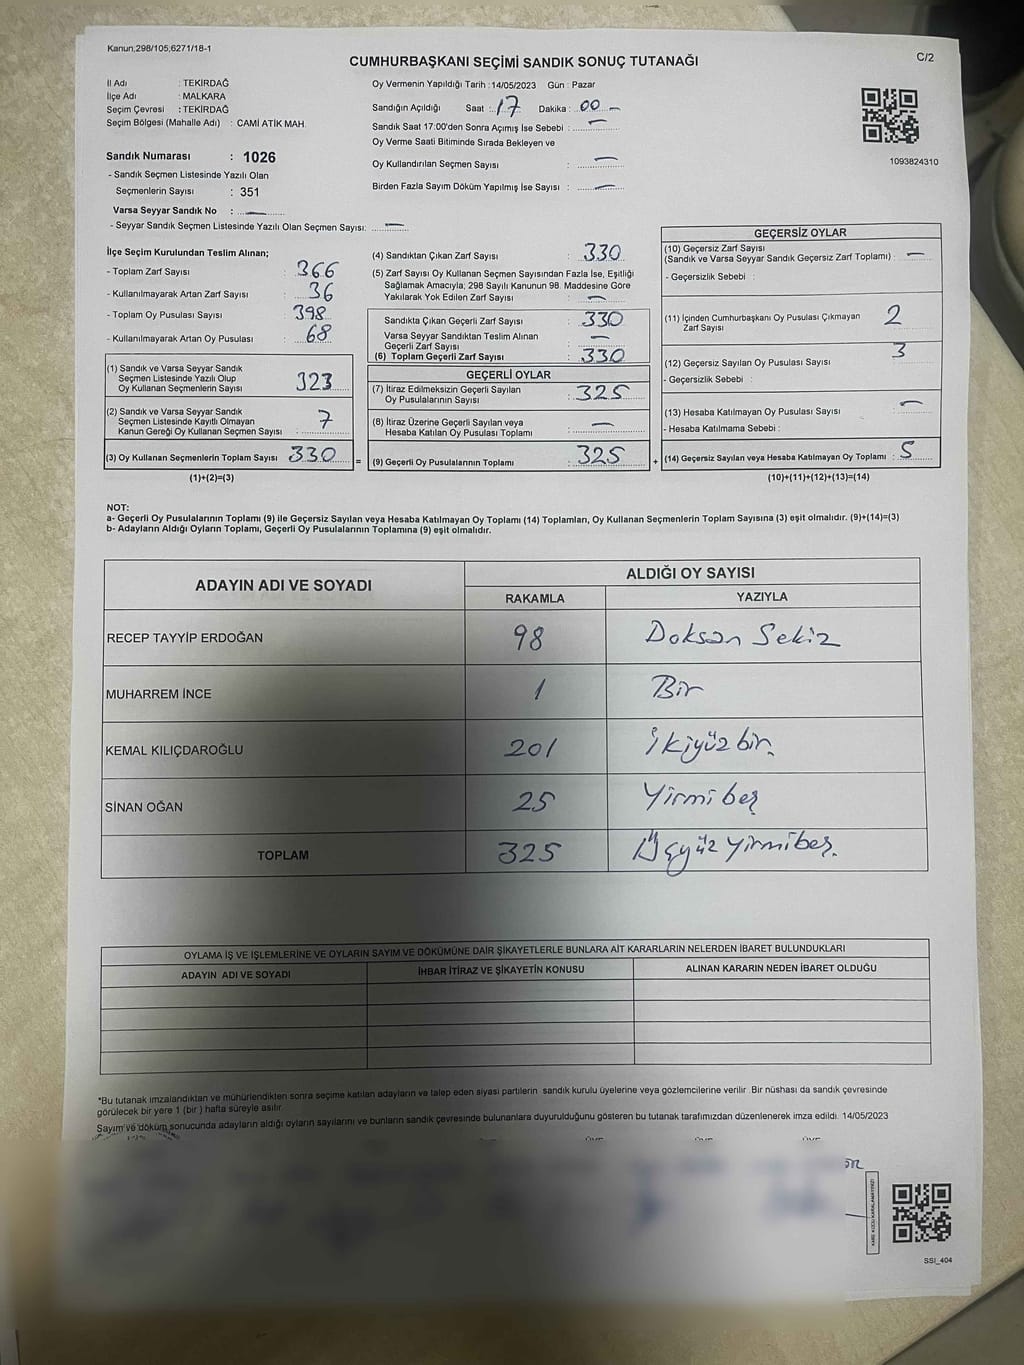 Kanun;298/105;6271/18-1
CUMHURBAŞKANI SEÇİMİ SANDIK SONUÇ TUTANAĞI
C/2
İl Adı : TEKİRDAĞ
İlçe Adı : MALKARA
Seçim Çevresi : TEKİRDAĞ
Seçim Bölgesi (Mahalle Adı) : CAMİ ATİK MAH.
Oy Vermenin Yapıldığı Tarih : 14/05/2023 Gün : Pazar
Sandığın Açıldığı Saat : 17 Dakika : 00 –
Sandık Saat 17:00'den Sonra Açımış İse Sebebi : —
Oy Verme Saati Bitiminde Sırada Bekleyen ve
Oy Kullandırılan Seçmen Sayısı : —
Birden Fazla Sayım Döküm Yapılmış İse Sayısı : —
1093824310
Sandık Numarası : 1026
- Sandık Seçmen Listesinde Yazılı Olan
Seçmenlerin Sayısı : 351
Varsa Seyyar Sandık No : —
- Seyyar Sandık Seçmen Listesinde Yazılı Olan Seçmen Sayısı: —
İlçe Seçim Kurulundan Teslim Alınan;
- Toplam Zarf Sayısı : 366
- Kullanılmayarak Artan Zarf Sayısı : 36
- Toplam Oy Pusulası Sayısı : 398
- Kullanılmayarak Artan Oy Pusulası : 68
(1) Sandık ve Varsa Seyyar Sandık
Seçmen Listesinde Yazılı Olup
Oy Kullanan Seçmenlerin Sayısı : 323
(2) Sandık ve Varsa Seyyar Sandık
Seçmen Listesinde Kayıtlı Olmayan
Kanun Gereği Oy Kullanan Seçmen Sayısı : 7
(3) Oy Kullanan Seçmenlerin Toplam Sayısı 330 =
(1)+(2)=(3)
(4) Sandıktan Çıkan Zarf Sayısı : 330
(5) Zarf Sayısı Oy Kullanan Seçmen Sayısından Fazla İse, Eşitliği
Sağlamak Amacıyla; 298 Sayılı Kanunun 98. Maddesine Göre
Yakılarak Yok Edilen Zarf Sayısı : —
Sandıkta Çıkan Geçerli Zarf Sayısı : 330
Varsa Seyyar Sandıktan Teslim Alınan
Geçerli Zarf Sayısı : —
(6) Toplam Geçerli Zarf Sayısı : 330
GEÇERLİ OYLAR
(7) İtiraz Edilmeksizin Geçerli Sayılan
Oy Pusulalarının Sayısı : 325
(8) İtiraz Üzerine Geçerli Sayılan veya
Hesaba Katılan Oy Pusulası Toplamı : —
(9) Geçerli Oy Pusulalarının Toplamı : 325 +
GEÇERSİZ OYLAR
(10) Geçersiz Zarf Sayısı
(Sandık ve Varsa Seyyar Sandık Geçersiz Zarf Toplamı) : —
- Geçersizlik Sebebi :
(11) İçinden Cumhurbaşkanı Oy Pusulası Çıkmayan
Zarf Sayısı 2
(12) Geçersiz Sayılan Oy Pusulası Sayısı : 3
- Geçersizlik Sebebi :
(13) Hesaba Katılmayan Oy Pusulası Sayısı : —
- Hesaba Katılmama Sebebi :
(14) Geçersiz Sayılan veya Hesaba Katılmayan Oy Toplamı : 5
(10)+(11)+(12)+(13)=(14)
NOT:
a- Geçerli Oy Pusulalarının Toplamı (9) ile Geçersiz Sayılan veya Hesaba Katılmayan Oy Toplamı (14) Toplamları, Oy Kullanan Seçmenlerin Toplam Sayısına (3) eşit olmalıdır. (9)+(14)=(3)
b- Adayların Aldığı Oyların Toplamı, Geçerli Oy Pusulalarının Toplamına (9) eşit olmalıdır.
ADAYIN ADI VE SOYADI
ALDIĞI OY SAYISI
RAKAMLA YAZIYLA
RECEP TAYYİP ERDOĞAN 98 Doksan Sekiz
MUHARREM İNCE 1 Bir
KEMAL KILIÇDAROĞLU 201 İkiyüz bir.
SİNAN OĞAN 25 Yirmi beş
TOPLAM 325 Üçyüz Yirmibeş.
OYLAMA İŞ VE İŞLEMLERİNE VE OYLARIN SAYIM VE DÖKÜMÜNE DAİR ŞİKAYETLERLE BUNLARA AİT KARARLARIN NELERDEN İBARET BULUNDUKLARI
ADAYIN ADI VE SOYADI İHBAR İTİRAZ VE ŞİKAYETİN KONUSU ALINAN KARARIN NEDEN İBARET OLDUĞU
*Bu tutanak imzalandıktan ve mühürlendikten sonra seçime katılan adayların ve talep eden siyasi partilerin sandık kurulu üyelerine veya gözlemcilerine verilir. Bir nüshası da sandık çevresinde
görülecek bir yere 1 (bir ) hafta süreyle asılır.
Sayım ve döküm sonucunda adayların aldığı oyların sayılarını ve bunların sandık çevresinde bulunanlara duyurulduğunu gösteren bu tutanak tarafımızdan düzenlenerek imza edildi. 14/05/2023
SSI_404